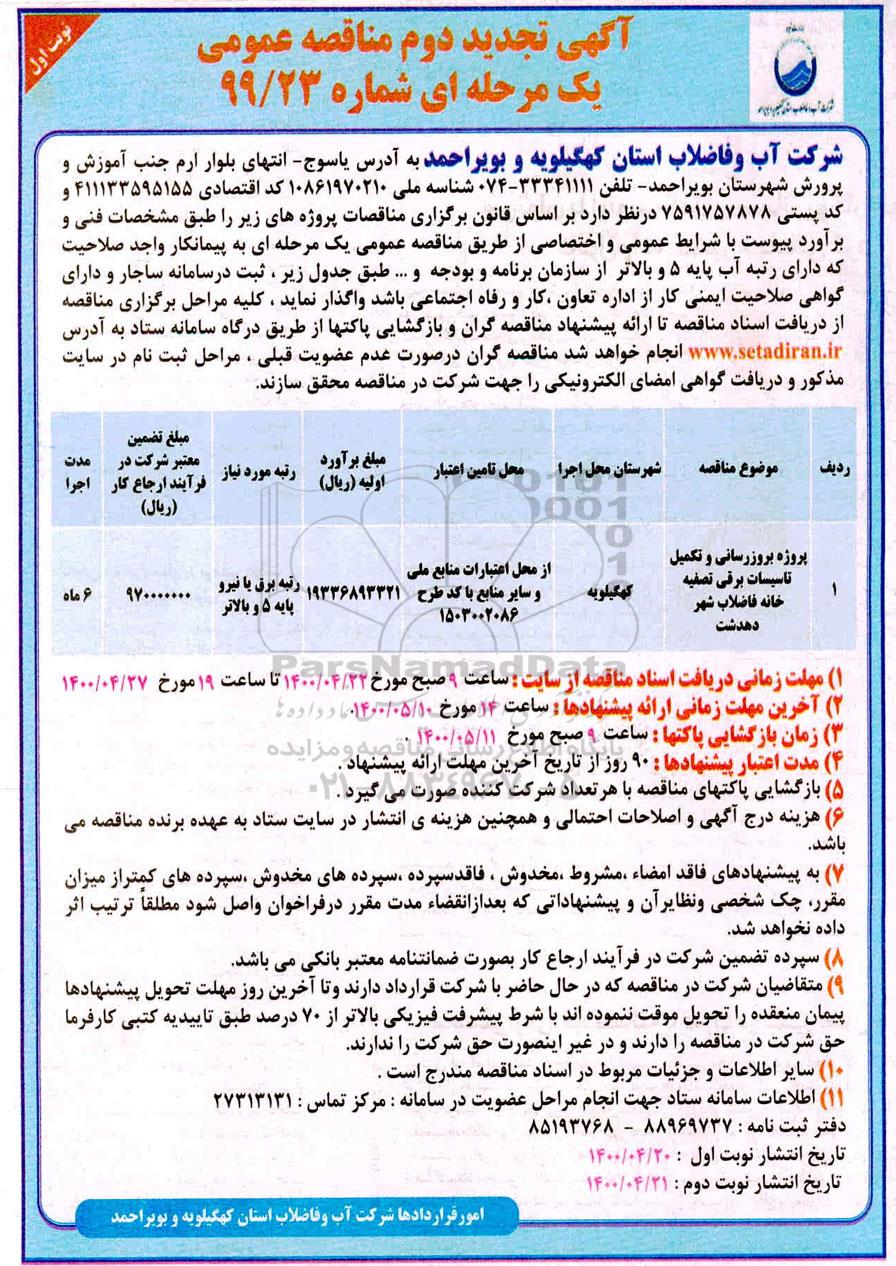 آگهی تجدید دوم مناقصه عمومی
یک مرحله ای شماره ۹۹/۲۳
نوبت اول
شرکت آب وفاضلاب استان کهگیلویه و بویراحمد به آدرس یاسوج- انتهای بلوار ارم جنب آموزش و
پرورش شهرستان بویراحمد- تلفن ۳۳۳۴۱۱۱۱-۰۷۴ شناسه ملی ۱۰۸۶۱۹۷۰۲۱۰ کد اقتصادی ۴۱۱۱۳۳۵۹۵۱۵۵ و
کد پستی ۷۵۹۱۷۵۷۸۷۸ درنظر دارد بر اساس قانون برگزاری مناقصات پروژه های زیر را طبق مشخصات فنی و
برآورد پیوست با شرایط عمومی و اختصاصی از طریق مناقصه عمومی یک مرحله ای به پیمانکار واجد صلاحیت
که دارای رتبه آب پایه ۵ و بالاتر از سازمان برنامه و بودجه و ... طبق جدول زیر ، ثبت درسامانه ساجار و دارای
گواهی صلاحیت ایمنی کار از اداره تعاون ،کار و رفاه اجتماعی باشد واگذار نماید ، کلیه مراحل برگزاری مناقصه
از دریافت اسناد مناقصه تا ارائه پیشنهاد مناقصه گران و بازگشایی پاکتها از طریق درگاه سامانه ستاد به آدرس
www.setadiran.ir انجام خواهد شد مناقصه گران درصورت عدم عضویت قبلی ، مراحل ثبت نام در سایت
مذکور و دریافت گواهی امضای الکترونیکی را جهت شرکت در مناقصه محقق سازند.
ردیف موضوع مناقصه شهرستان محل اجرا محل تامین اعتبار مبلغ برآورد اولیه (ریال) رتبه مورد نیاز مبلغ تضمین معتبر شرکت در فرآیند ارجاع کار (ریال) مدت اجرا
۱ پروژه بروزرسانی و تکمیل تاسیسات برقی تصفیه خانه فاضلاب شهر دهدشت کهگیلویه از محل اعتبارات منابع ملی و سایر منابع با کد طرح ۱۵۰۳۰۰۲۰۸۶ ۱۹۳۳۶۸۹۳۳۲۱ رتبه برق یا نیرو پایه ۵ و بالاتر ۹۷۰۰۰۰۰۰۰ ۶ ماه
ParsNamadData
۱) مهلت زمانی دریافت اسناد مناقصه از سایت : ساعت ۹ صبح مورخ ۱۴۰۰/۰۴/۲۲ تا ساعت ۱۹ مورخ ۱۴۰۰/۰۴/۲۷
۲) آخرین مهلت زمانی ارائه پیشنهادها : ساعت ۱۴ مورخ ۱۴۰۰/۰۵/۱۰.
۳) زمان بازگشایی پاکتها : ساعت ۹ صبح مورخ ۱۴۰۰/۰۵/۱۱ .
پایگاه اطلاع رسانی مناقصه و مزایده
۴) مدت اعتبار پیشنهادها : ۹۰ روز از تاریخ آخرین مهلت ارائه پیشنهاد .
۵) بازگشایی پاکتهای مناقصه با هر تعداد شرکت کننده صورت می گیرد .
۶) هزینه درج آگهی و اصلاحات احتمالی و همچنین هزینه ی انتشار در سایت ستاد به عهده برنده مناقصه می
باشد.
۷) به پیشنهادهای فاقد امضاء ،مشروط ،مخدوش ، فاقدسپرده ،سپرده های مخدوش ،سپرده های کمتراز میزان
مقرر، چک شخصی ونظایرآن و پیشنهاداتی که بعدازانقضاء مدت مقرر درفراخوان واصل شود مطلقاً ترتیب اثر
داده نخواهد شد.
۸) سپرده تضمین شرکت در فرآیند ارجاع کار بصورت ضمانتنامه معتبر بانکی می باشد.
۹) متقاضیان شرکت در مناقصه که در حال حاضر با شرکت قرارداد دارند وتا آخرین روز مهلت تحویل پیشنهادها
پیمان منعقده را تحویل موقت ننموده اند با شرط پیشرفت فیزیکی بالاتر از ۷۰ درصد طبق تاییدیه کتبی کارفرما
حق شرکت در مناقصه را دارند و در غیر اینصورت حق شرکت را ندارند.
۱۰) سایر اطلاعات و جزئیات مربوط در اسناد مناقصه مندرج است .
۱۱) اطلاعات سامانه ستاد جهت انجام مراحل عضویت در سامانه : مرکز تماس : ۲۷۳۱۳۱۳۱
دفتر ثبت نامه : ۸۸۹۶۹۷۳۷ - ۸۵۱۹۳۷۶۸
تاریخ انتشار نوبت اول : ۱۴۰۰/۰۴/۲۰
تاریخ انتشار نوبت دوم : ۱۴۰۰/۰۴/۲۱
امور قراردادها شرکت آب وفاضلاب استان کهگیلویه و بویراحمد